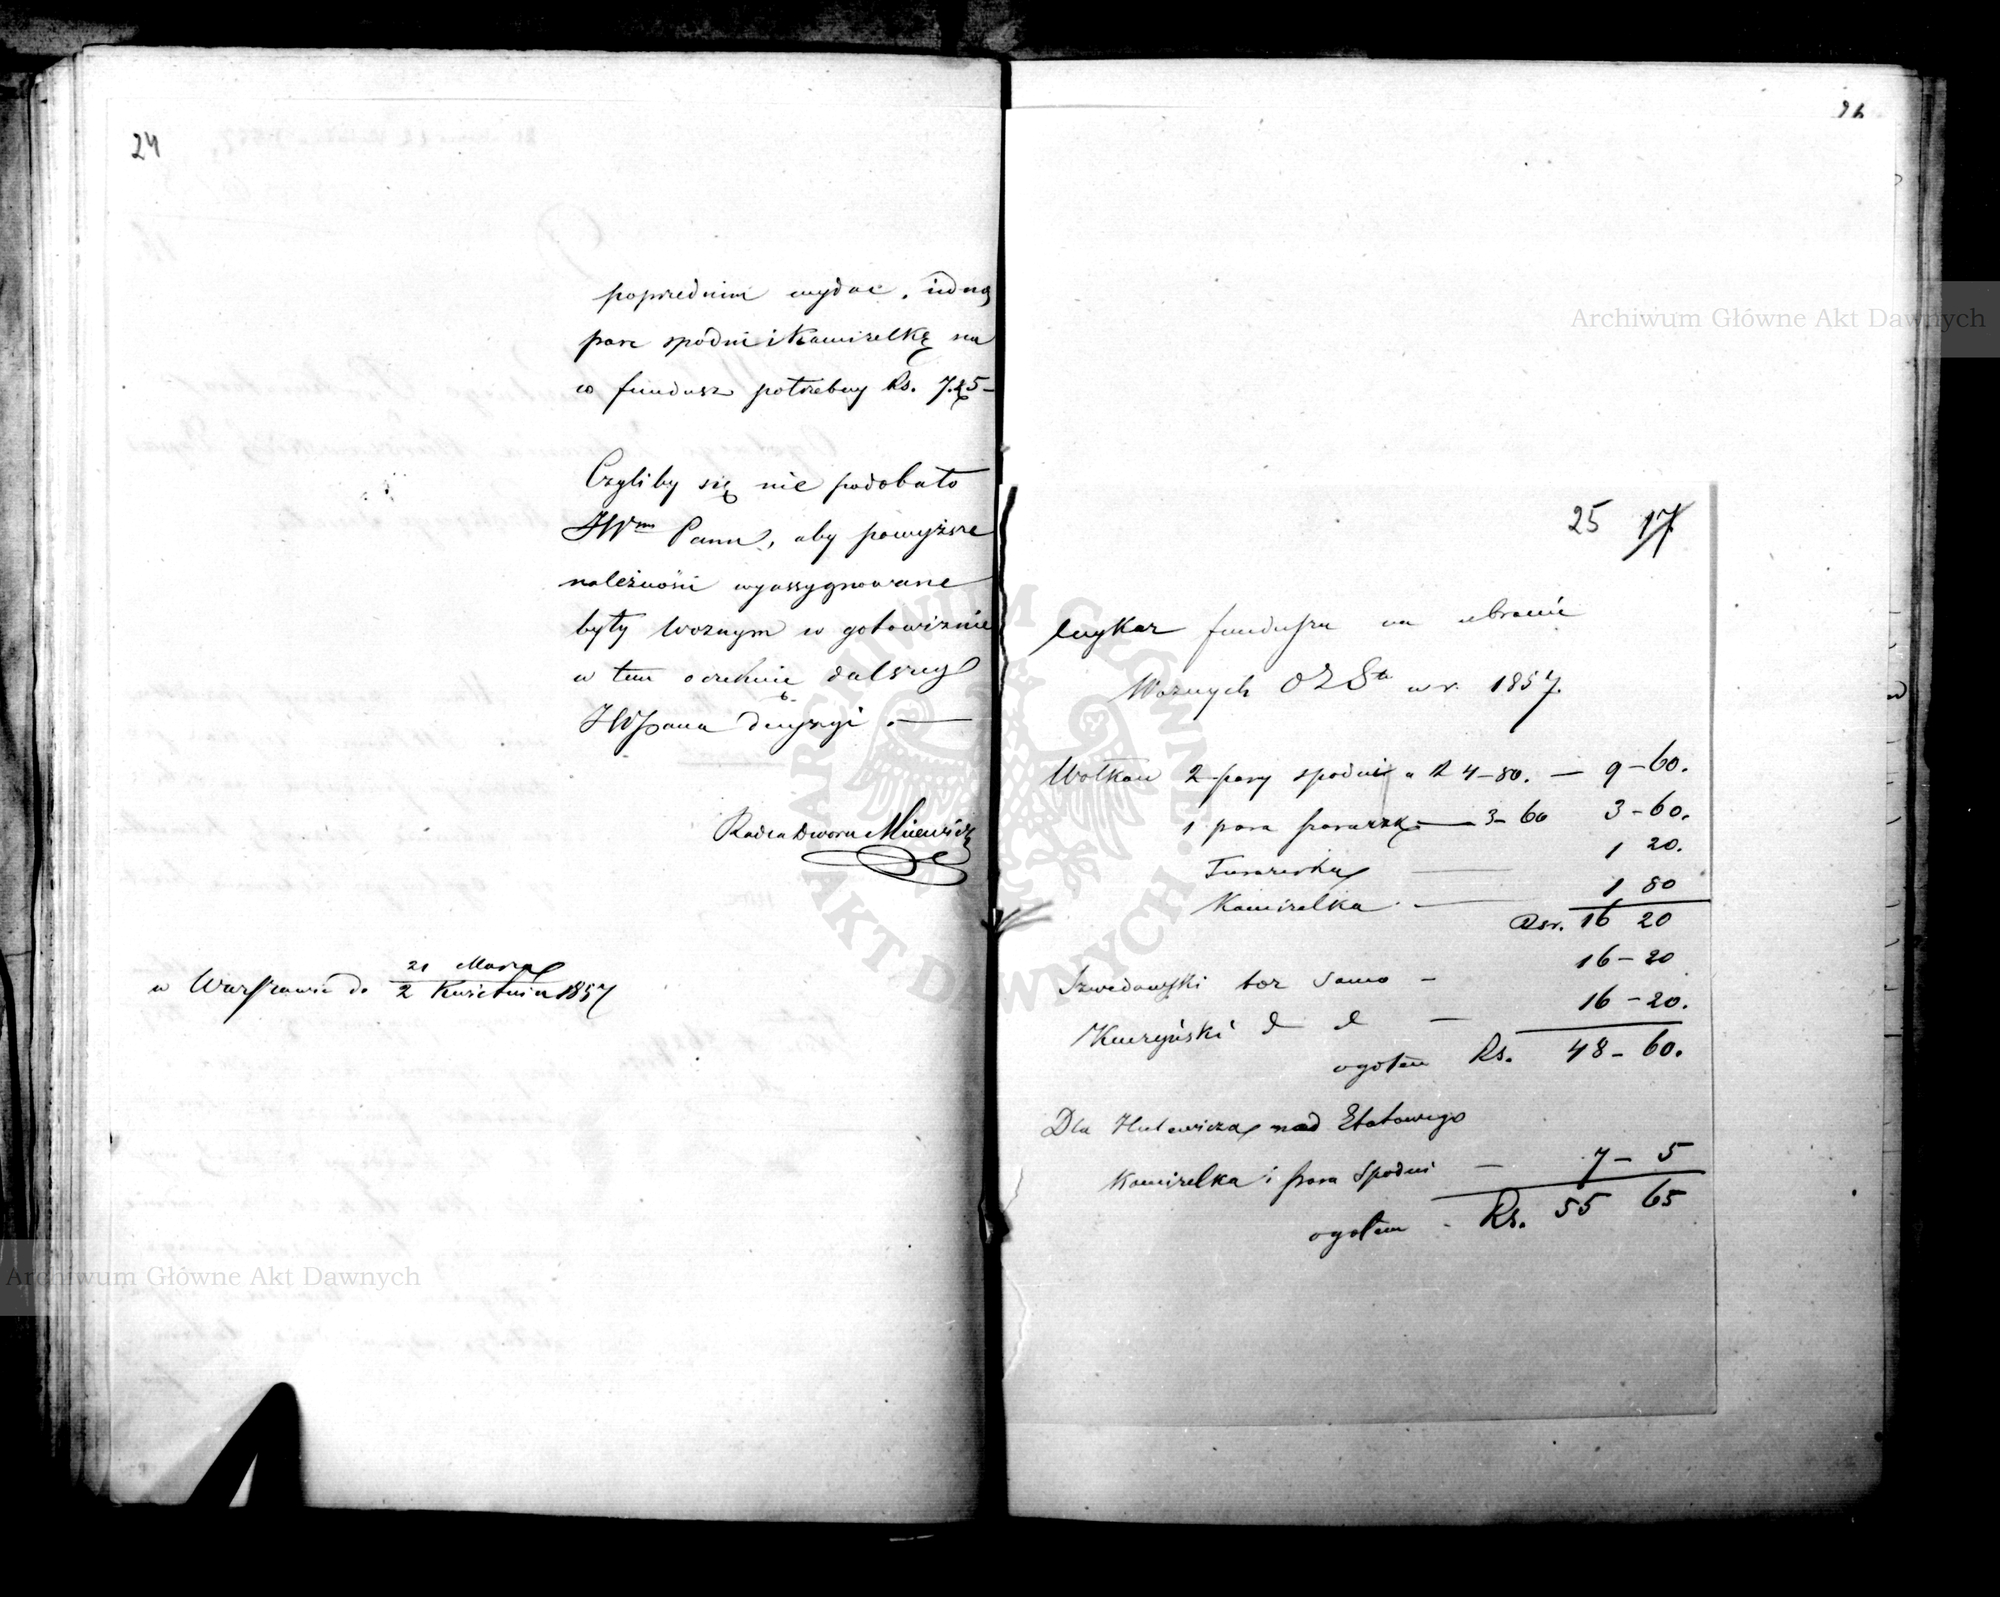 24
poprzednim wydać, jedną
parę spodni i Kamizelkę na
co fundusz potrzebny Rs. 7.5 -
Czyliby się nie podobało
JWmu Panu, aby powyższe
należności wyassygnowane
były Woznym w gotowiznie
w tem oczekuię dalszey
JWPana decyzyi . —
Radca Dworu
w Warszawie d. 21 Marca / 2 Kwietnia 1857
26
25 17
Wykaz funduszu na ubranie
Woznych w r. 1857.
Wołkow 2 pary spodni a R 4-80. — 9-60.
1 para — 3-60 3-60.
1 20.
Kamizelka — 1 80
Rsr. 16 20
Szwedowski toż samo — 16-20
d d — 16-20.
ogółem Rs. 48-60.
Dla Hulewicza nad Etatowego
Kamizelka i para Spodni — 7-5
ogółem - Rs. 55 65
Archiwum Główne Akt Dawnych
Archiwum Główne Akt Dawnych
ARCHIWUM GŁÓWNE AKT DAWNYCH